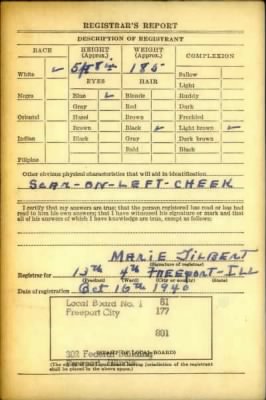 REGISTRAR'S REPORT
DESCRIPTION OF REGISTRANT
RACE HEIGHT (Approx.) WEIGHT (Approx.) COMPLEXION
5 ft 8 in 185
White ✓ Sallow
EYES HAIR Light
Negro Blue ✓ Blonde Ruddy
Gray Red Dark
Oriental Hazel Brown Freckled
Brown Black ✓ Light brown ✓
Indian Black Gray Dark brown
Bald Black
Filipino
Other obvious physical characteristics that will aid in identification
SCAR-ON-LEFT-CHEEK
I certify that my answers are true; that the person registered has read or has had
read to him his own answers; that I have witnessed his signature or mark and that
all of his answers of which I have knowledge are true, except as follows:
MARIE JILBERT
(Signature of registrar)
Registrar for 12th 4th FREEPORT-ILL
(Precinct) (Ward) (City or county) (State)
Date of registration Oct 16th 1940
Local Board No. 1 81
Freeport City 177
801
302 Federal Building
(STAMP OF LOCAL BOARD)
(The stamp of the Local Board having jurisdiction of the registrant
shall be placed in the above space)